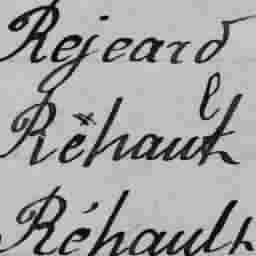 Rejeard
l
Réhaut
Réhault